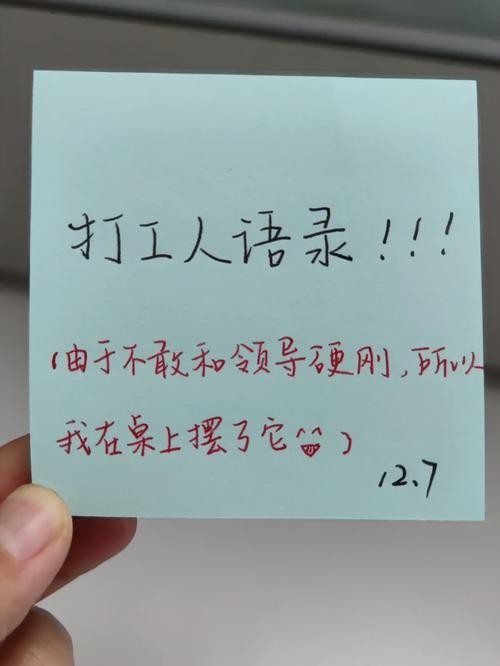 打工人语录!!!
(由于不敢和领导硬刚,所以
我在桌上摆了它)
12.7